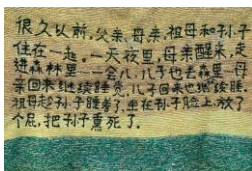 很久以前,父亲,母亲,祖母和孙子
住在一起。一天夜里,母亲醒来,走
进森林里。一会儿,儿子也去森里。母
亲回来继续睡觉,儿子回来也继续睡。
祖母趁孙子睡着了,坐在孙子脸上,放了
个屁,把孙子熏死了。